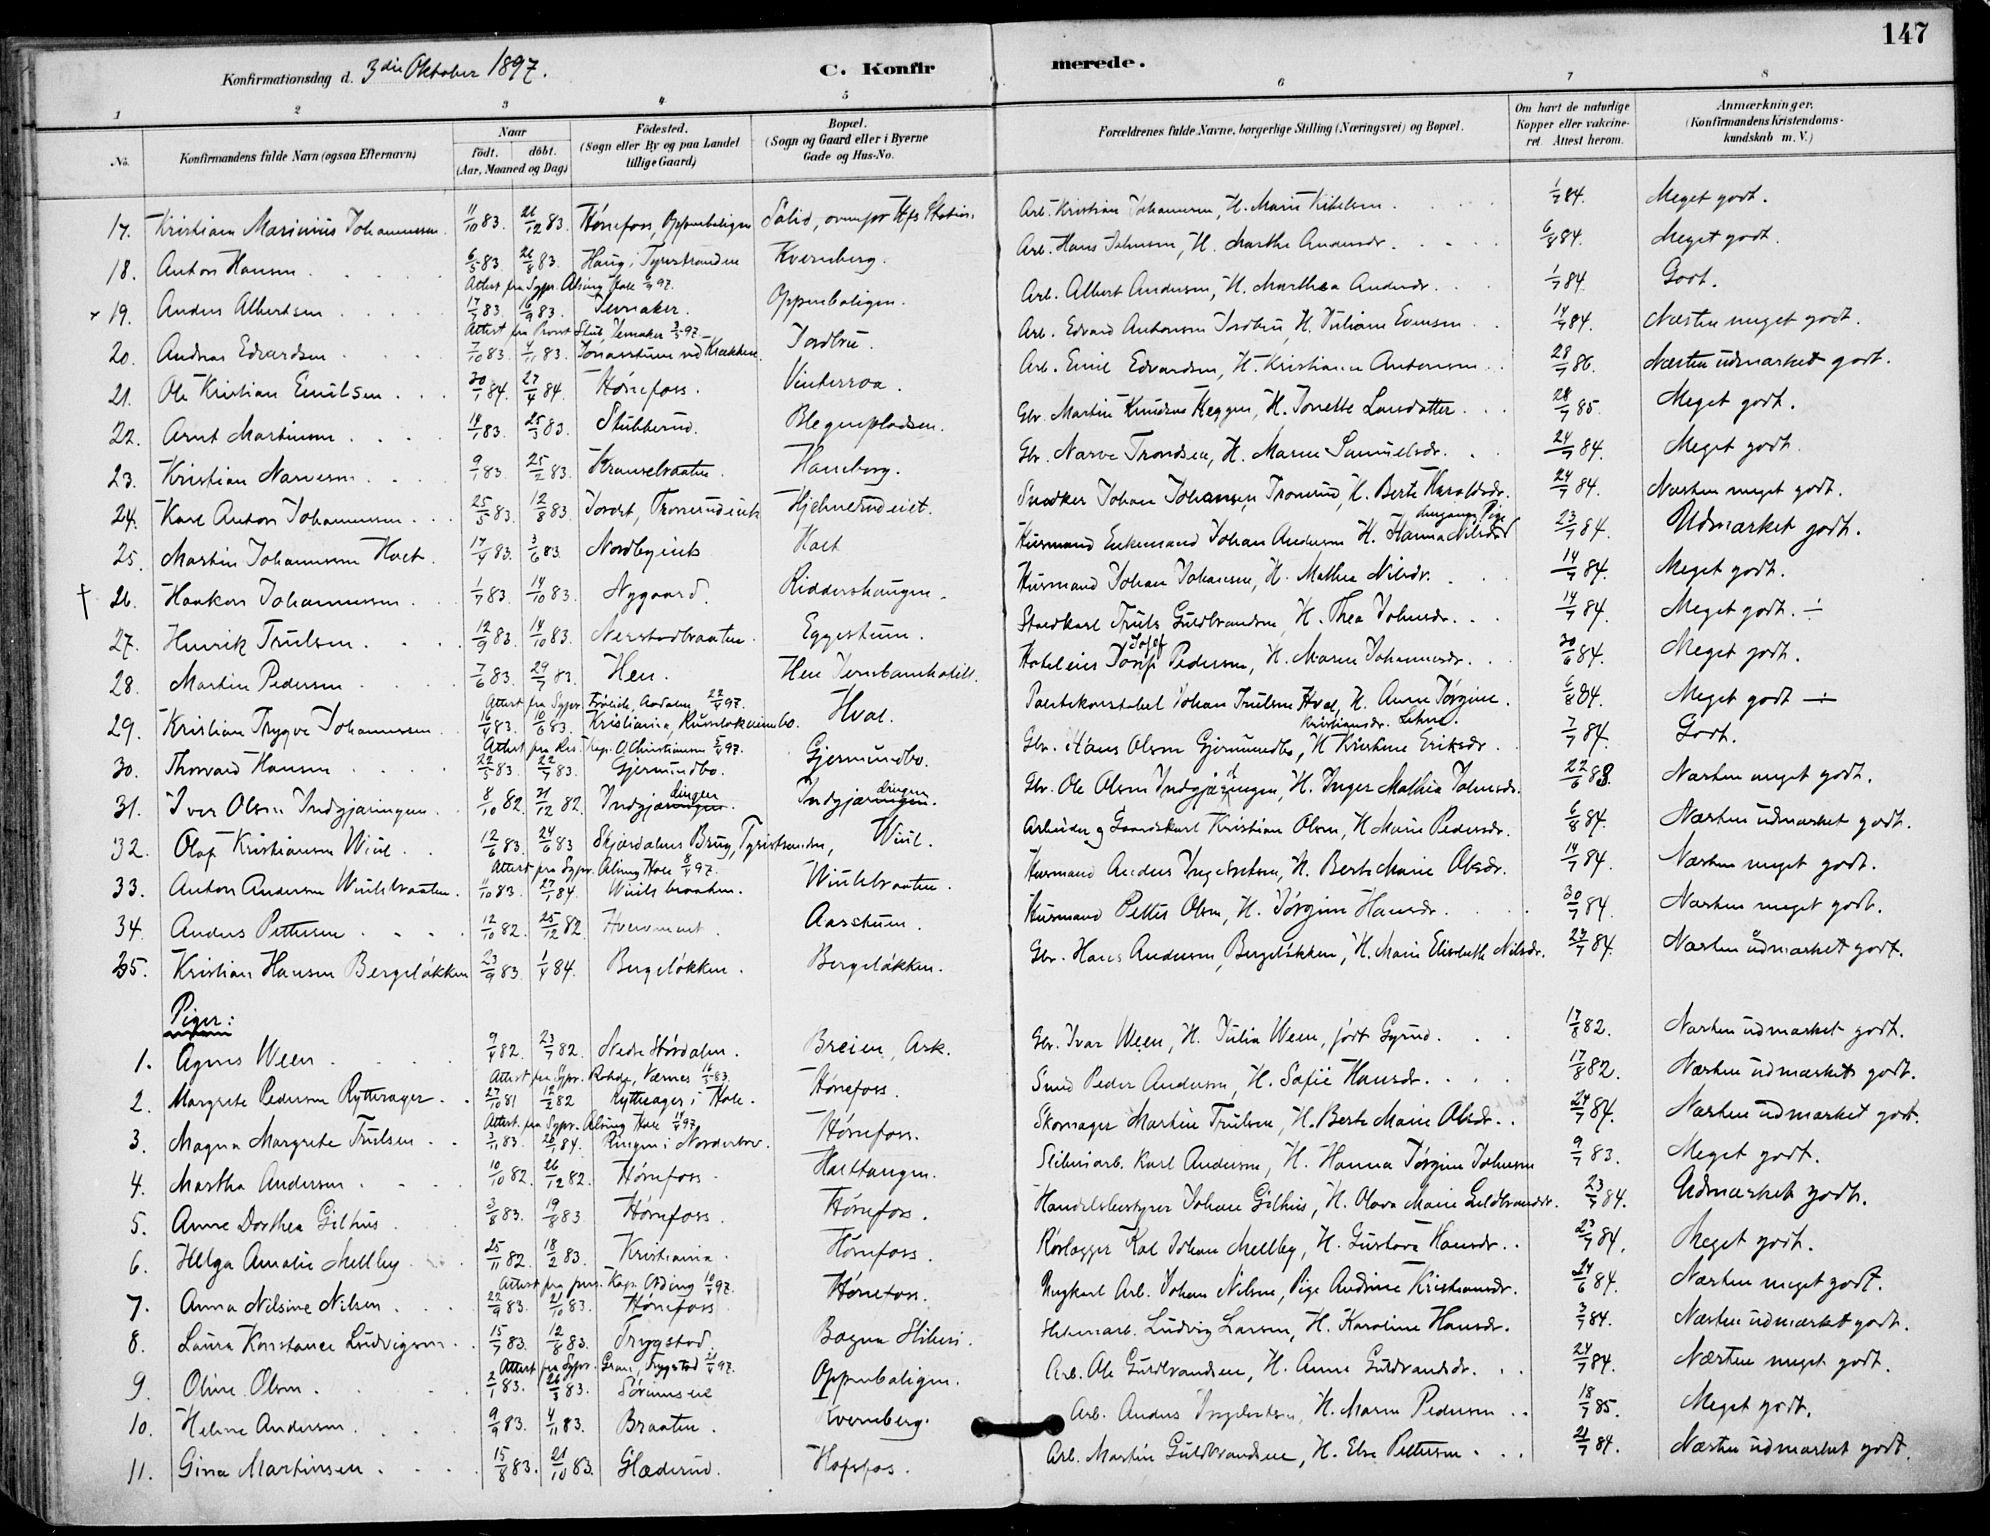 147
Konfirmationsdag d. 3die Oktober 1897. C. Konfirmerede.
1 2 3 4 5 6 7 8
No. Konfirmandens fulde Navn (ogsaa Efternavn) Naar födt. döbt. (Aar, Maaned og Dag) Födested. (Sogn eller By og paa Landet tillige Gaard) Bopæl. (Sogn og Gaard eller i Byerne Gade og Hus-No. Forældrenes fulde Navne, borgerlige Stilling (Næringsvei) og Bopæl. Om havt de naturlige Kopper eller vakcineret. Attest herom. Anmærkninger. (Konfirmandens Kristendomskundskab m. V.)
17. Kristian Marinius Johannessen 11/10 83. 26/12 83. Hönefoss, Oppenbaligen Solid, ovenfor Hfs Station. Arb. Kristian Johannesen, H. Marie Kihelsen. 1/7 84. Meget godt.
18. Anton Hansen 6/5 83. 26/8 83. Haug i Tyristranden Kvernberg. Arb. Hans Johnsen, H. Marthe Andersdr. 6/8 84. Meget godt.
Attest fra Sypr. Alsing Hole 6/9 97.
× 19. Anders Albertsen 17/7 83. 16/9 83. Jevnaker. Oppenbaligen. Arb. Albert Andersen, H. Marthea Andersdr. 1/7 84. Godt.
Attest fra Provst Stub, Jevnaker 3/5 97.
20. Andreas Edvardsen 7/10 83. 4/11 83. Jonasstuen ved Krakken. Jordbru. Arb. Edvard Antonsen Jordbru, H. Juliane Evensen 14/7 84. Næsten meget godt.
21. Ole Kristian Emilsen 30/1 84. 27/4 84. Hönefoss. Vinterroa. Arb. Emil Edvardsen, H. Kristiane Antonsen 28/7 86. Næsten udmærket godt.
22. Arnt Martinsen 14/1 83. 25/3 83. Stubberud. Blegepladsen. Gbr. Martin Knudsen Heggen, H. Jonette Larsdatter. 28/7 85. Meget godt.
23. Kristian Narvesen 9/1 83. 25/2 83. Kranselbraaten. Haneborg. Gbr. Narve Trondsen, H. Maren Samuelsdr. 24/7 84. Meget godt.
24. Karl Anton Johannessen 25/5 83. 12/8 83. Jordet, Tronrudeiet Hjelmerudeiet. Snedker Johan Johansen, Tronrud, H. Berte Haraldsdr. 24/7 84. Næsten meget godt.
25. Martin Johannessen Hoct. 17/4 83. 3/6 83. Nordbyeiet Hoct Husmand Enkemand Johan Andersen H. Hanna Nilsdr 23/7 84. Udmærket godt.
† 26. Haakon Johannessen 1/7 83. 14/10 83. Nygaard. Riddershaugen. Husmand Johan Johansen, H. Mathea Nilsdr. 14/7 84. Meget godt.
27. Henrik Trulsen 12/9 83. 14/10 83. Nerstadbraaten. Eggestuen. Staldkarl Truls Guldbrandsen, H. Thea Johnsdr. 14/7 84. Meget godt. ÷
28. Martin Pedersen 7/6 83. 29/7 83. Hen. Hen Jernbanehotell. Hoteleier Josef Pedersen, H. Maren Johannesdr. 30/6 84. Meget godt.
Attest fra Sypr. Aadalen, 22/4 97.
29. Kristian Trygve Johannessen 16/4 83. 10/6 83. Kristiania, Hval. Politikonstabel Johan Trulsen Hval, H. Anne Jörgine 6/8 84. Meget godt ÷
Attest fra Res. Kap. O. Christiansen 5/4 97.
30. Thorvard Hansen 22/5 83. 22/7 83. Gjermundbo. Gjermundbo. Gbr. Hans Olsen Gjermundbo, H. Kristine Eriksdr 7/7 84. Godt.
31. Iver Olsen Indgjæringen 8/10 82. 21/12 82. Indgjærdingen. Indgjærdingen. Gbr. Ole Olsen Indgjærdingen, H. Inger Mathea Johnsdr. 22/6 83. Næsten meget godt.
32. Olaf Kristiansen Wiul 12/6 83. 24/6 83 Skjærdalens Brug, Tyristranden, Wiul. Arbeider og Gaardskarl Kristian Olsen, H Marie Pedersdr. 6/8 84. Næsten udmærket godt.
Attest fra Sypr. Alsing Hole 8/4 97.
33. Anton Andersen Wiulsbraaten. 11/10 83. 27/1 84. Wiulsbraaten. Wiulsbraaten. Husmand Anders Ingebretsen, H. Berte Marie Olsdr. 14/7 84. Næsten meget godt.
34. Anders Pettersen 12/10 82. 25/12 82. Hverven eiet. Aasstuen. Husmand Petter Olsen, H. Jörgine Hansdr. 30/7 84. Næsten meget godt.
35. Kristian Hansen Bergelökken 23/9 83. 1/4 84. Bergelökken. Bergelökken. Gbr. Hans Andersen, Bergelökken, H. Marie Elisabeth Nilsdr. 23/7 84. Næsten udmærket godt.
Piger:
1. Agnes Ween 9/4 82. 23/7 82. Nedre Stördalen. Breien, Ask. Gbr. Ivar Ween, H. Julia Ween, født Gyrud. 17/8 82. Næsten udmærket godt.
Attest fra Sypr. Rohde, Værnes 16/5 83.
2. Margrete Pedersen Rytterager. 27/10 81 12/2 82 Rytterager i Hole. Hönefoss. Smed Peder Andersen, H. Sofie Hansdr. 17/8 82. Næsten udmærket godt.
Attest. fra Sypr. Alsing Hole 14/4 97.
3. Magna Margrete Trulsen 3/11 83. 26/1 84. Ringen i Norderhov. Hönefoss. Skomager Martin Trulsen, H. Berte Marie Olsdr. 24/7 84. Næsten udmærket godt.
4. Martha Andersen 10/10 82. 26/12 82. Hönefoss. Halttangen. Sliberiarb. Karl Andersen, H. Hanna Jörgine Johnsen 9/7 83. Meget godt.
5. Anne Dorthea Gilhus 3/8 83. 19/8 83. Hönefoss. Hönefoss. Handelsbestyrer Johan Gilhus, H. Olava Marie Guldbrandsdr. 23/7 84. Udmærket godt.
6. Helga Amalie Mellby 25/11 82. 18/2 83. Kristiania. Hönefoss. Rörlægger Karl Johan Mellby, H. Gustava Hansdr. 23/7 84. Meget godt.
Attest fra pers. Kap. 10/4 97.
7. Anna Nilsine Nilsen 22/9 83. 21/10 83. Hönefoss Hönefoss. Ungkarl Arb. Johan Nilsen, Pige Andrine Kristiansdr. 24/6 84. Næsten meget godt.
8. Laura Konstance Ludvigsen 15/7 83. 12/8 83. Trygstad. Bægna Sliberi. Sliberiarb. Ludvig Larsen, H. Karoline Hansdr. 3/7 84. Næsten udmærket godt.
Attest fra Sypr. Gran, Trygstad 21/4 97.
9. Oline Olsen 2/1 83. 26/3 83. Sörumseie Oppenbaligen. Arb. Ole Guldbrandsen, H. Anne Guldbrandsdr. 24/7 84. Næsten meget godt.
10. Helene Andersen 9/9 83. 4/11 83. Braaten. Kvernberg. Arb. Anders Ingebretsen, H. Maren Pedersen 18/7 85. Meget godt.
11. Gina Martinsen 15/8 83. 21/10 83. Glæderud. Hofsfos. Arb. Martin Guldbrandsen, H. Else Pettersen 21/7 84. Næsten udmærket godt.